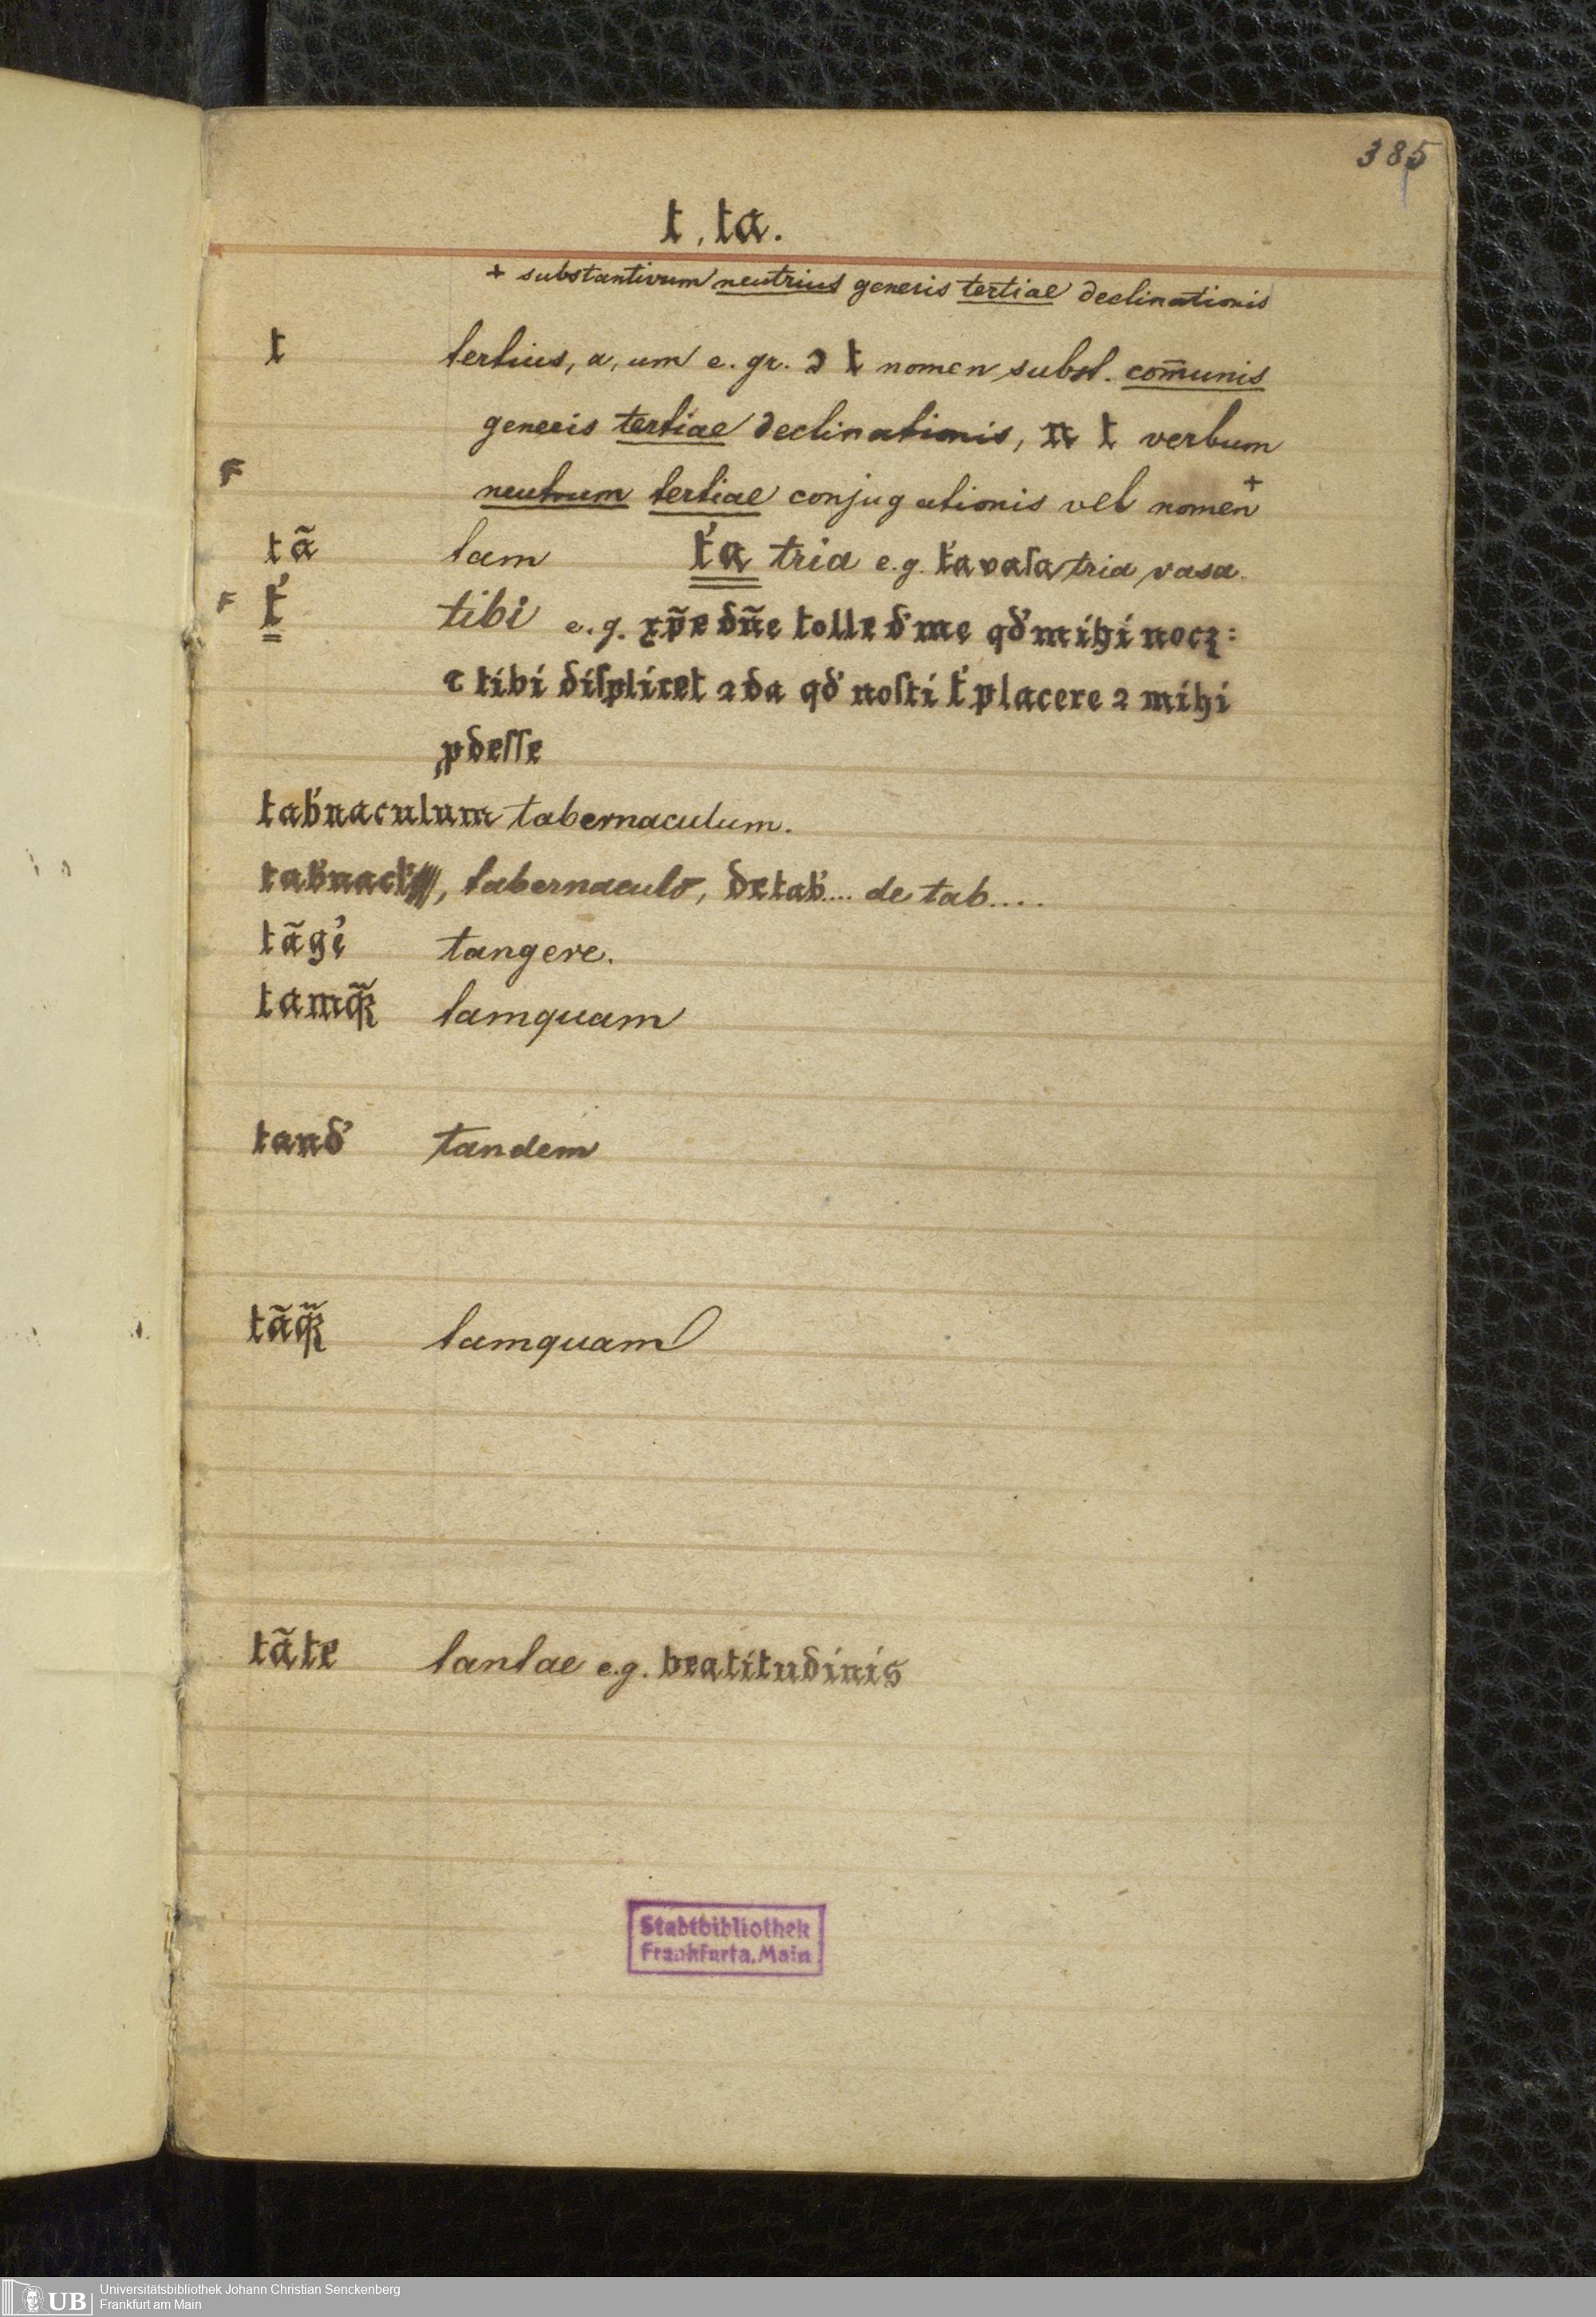 385
t, ta.
+ substantivum neutrius generis tertiae declinationis
t tertius, a, um e. gr. ɔ t nomen subst. com̄unis
generis tertiae declinationis, n t verbum
F neutrum tertiae conjugationis vel nomen +
tã tam t'a tria e.g. t'a vaſa tria vasa.
F t' tibi e.g. xp̃e dñe tolle d' me qd' mihi nocꝫ:
τ tibi diſplicet ⁊ da qd' noſti t' placere ⁊ mihi
ꝓdeſſe
tab'naculum tabernaculum.
tab'nacl', tabernaculo, de tab'.... de tab....
tãg'e tangere.
tamq̃ꝫ tamquam
tand' tandem
tãq̃ꝫ tamquam
tãte tantae e.g. beatitudinis
Stadtbibliothek
Frankfurt a. Main
UB Universitätsbibliothek Johann Christian Senckenberg
Frankfurt am Main